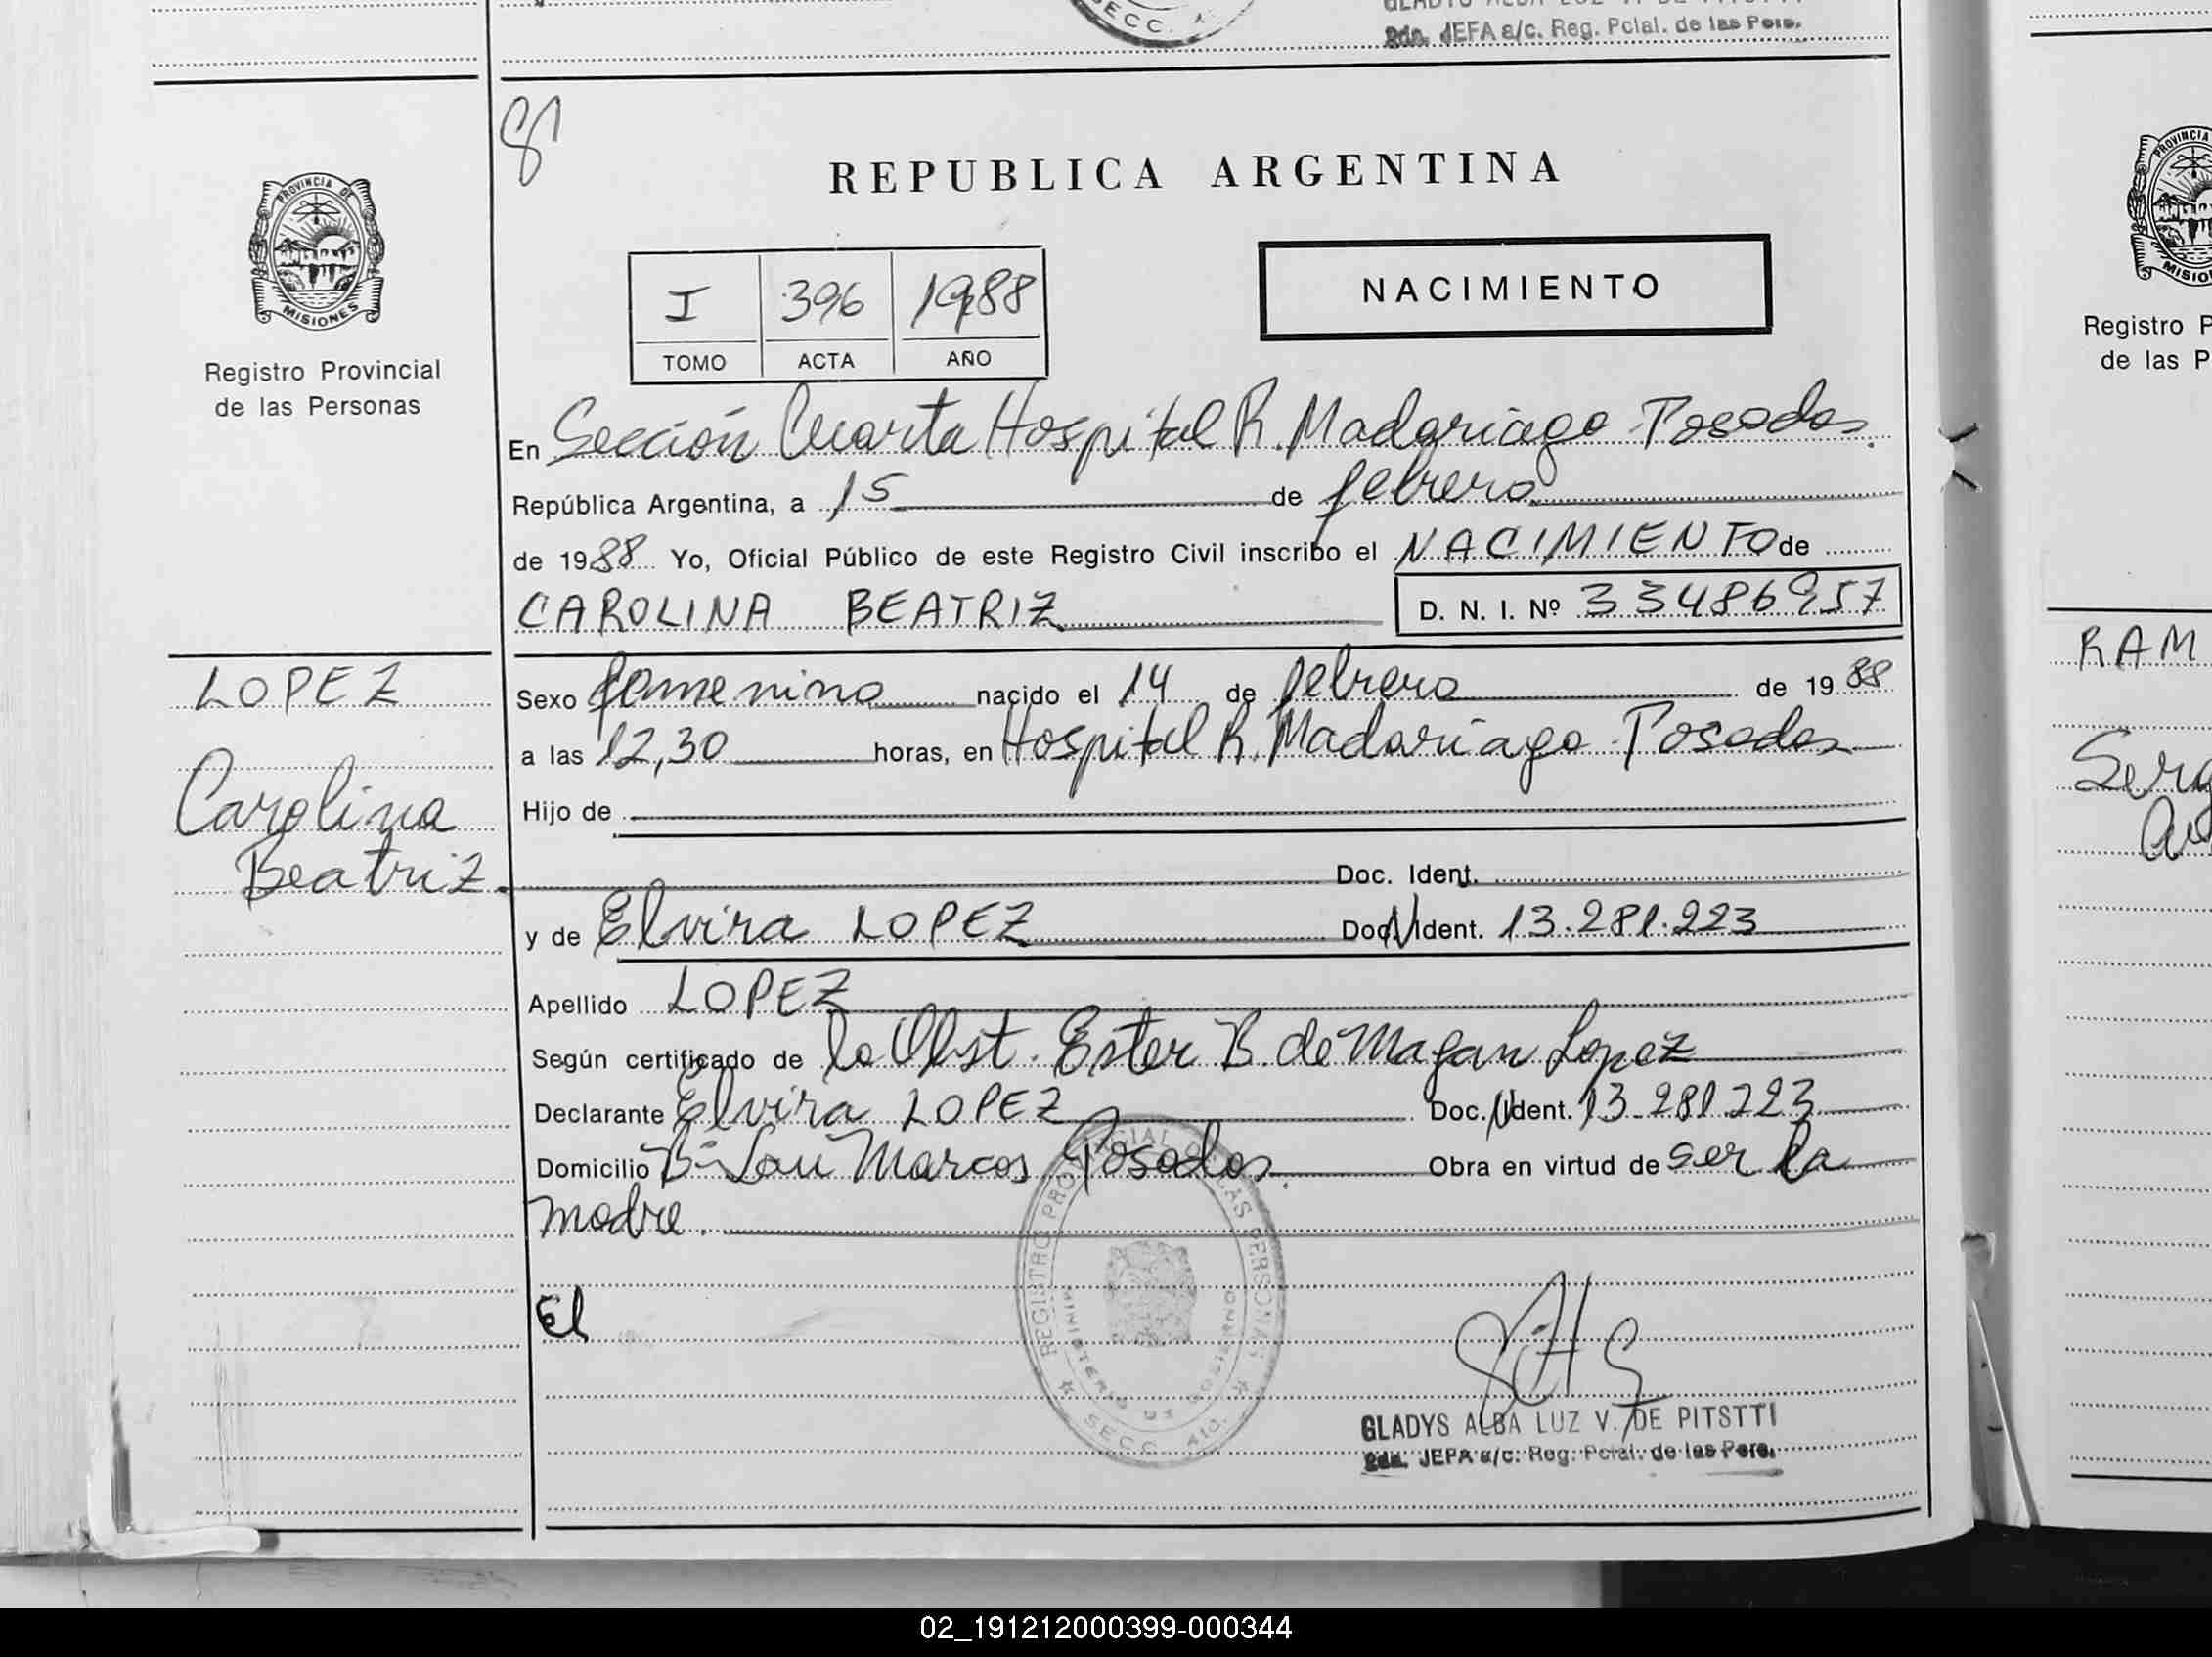 2da. JEFA a/c. Reg. Pcial. de las Pers.
SECC.
8
PROVINCIA DE
MISIONES
Registro Provincial
de las Personas
REPUBLICA ARGENTINA
I 396 1988
TOMO ACTA AÑO
NACIMIENTO
En Sección Cuarta Hospital R. Madariaga - Posadas.
República Argentina, a 15 de febrero
de 1988 Yo, Oficial Público de este Registro Civil inscribo el NACIMIENTO de
CAROLINA BEATRIZ D. N. I. Nº 33486957
LOPEZ
Carolina
Beatriz
Sexo femenino nacido el 14 de febrero de 1988
a las 12,30 horas, en Hospital R. Madariaga - Posadas
Hijo de
Doc. Ident.
y de Elvira LOPEZ Doc. Ident. 13.281.223
Apellido LOPEZ
Según certificado de la Obst. Ester B. de Magan Lopez
Declarante Elvira LOPEZ Doc. Ident. 13.281.223
Domicilio Bº San Marcos Posadas. Obra en virtud de ser la
madre.
El
REGISTRO PROVINCIAL DE LAS PERSONAS
MINISTERIO DE GOBIERNO
SECC. 4ta.
GLADYS ALBA LUZ V. DE PITSTTI
2da. JEFA a/c. Reg. Pcial. de las Pers.
PROVINCIA
MISIO
Registro P
de las P
RAM
Serg
02_191212000399-000344